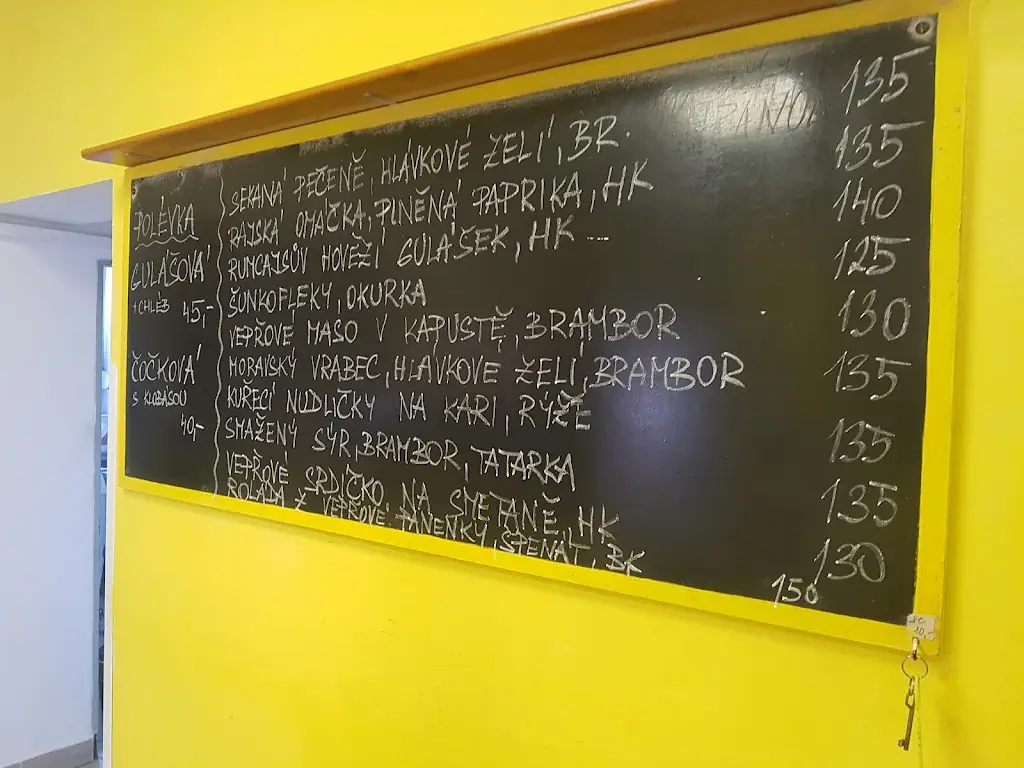 POLÉVKA
GULÁŠOVÁ
+ CHLÉB 45,-
ČOČKOVÁ
S KLOBÁSOU
40,-
SEKANÁ PEČENĚ, HLÁVKOVÉ ZELÍ, BR. 135
RAJSKÁ OMÁČKA, PLNĚNÁ PAPRIKA, HK 135
RUMCAJSŮV HOVĚZÍ GULÁŠEK, HK ... 140
ŠUNKOFLEKY, OKURKA 125
VEPŘOVÉ MASO V KAPUSTĚ, BRAMBOR 130
MORAVSKÝ VRABEC, HLÁVKOVÉ ZELÍ, BRAMBOR 135
KUŘECÍ NUDLIČKY NA KARI, RÝŽE 135
SMAŽENÝ SÝR, BRAMBOR, TATARKA 135
VEPŘOVÉ SRDÍČKO NA SMETANĚ, HK 130
ROLÁDA Z VEPŘOVÉ PANENKY, ŠPENÁT, BK 150
WC
10,-